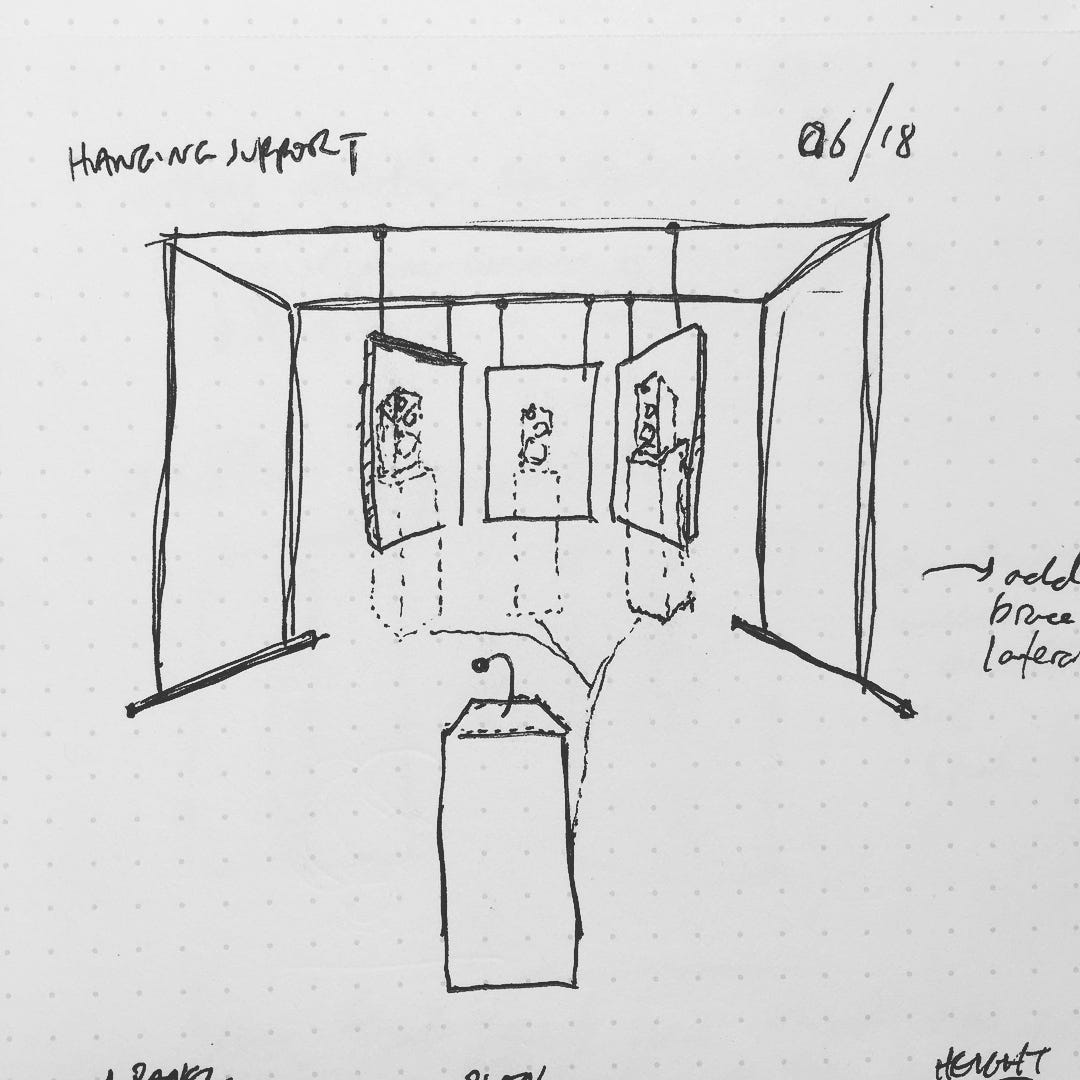 HANGING SUPPORT
06/18
→ add
brace
latera
HEIGHT